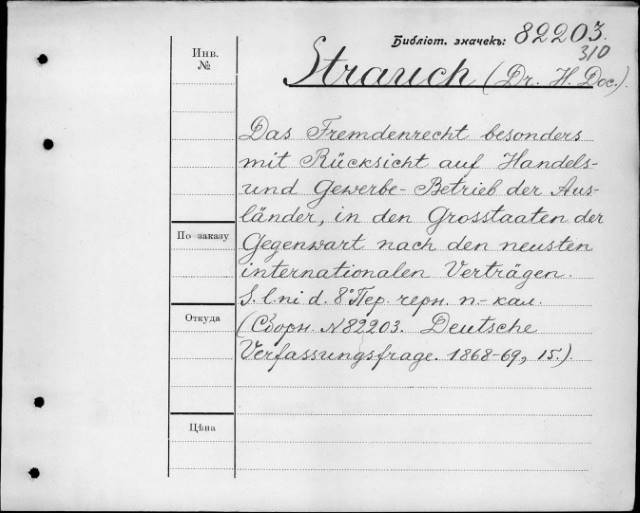 Библіот. значекъ: 82203.
310
Инв.
№
Strauch (Dr. H. Doc.).
Das Fremdenrecht besonders
mit Rücksicht auf Handels-
und Gewerbe-Betrieb der Aus-
länder, in den Grosstaaten der
Gegenwart nach den neusten
internationalen Verträgen.
S. l. ni d. 8° Пер. черн. п.-кал.
(Сборн. N 82203. Deutsche
Verfassungsfrage. 1868-69, 15.).
По заказу
Откуда
Цѣна